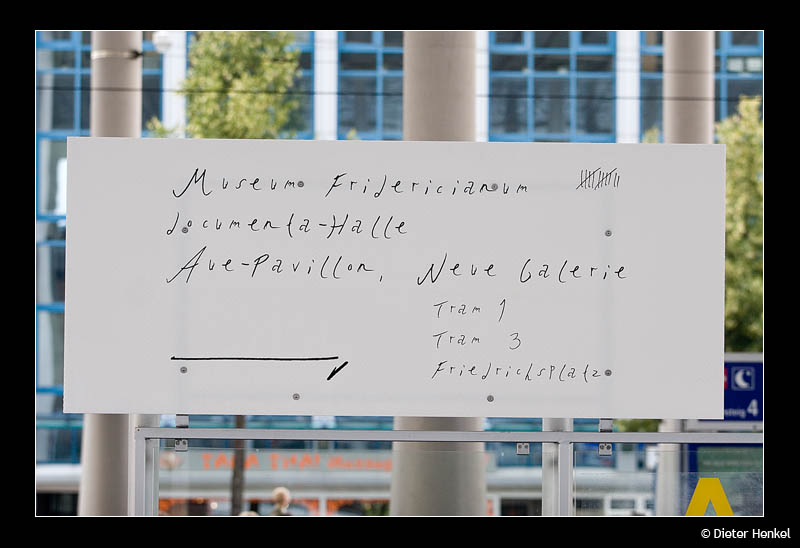 Museum Fridericianum
documenta-Halle
Aue-Pavillon, Neue Galerie
Tram 1
Tram 3
Friedrichsplatz
4
© Dieter Henkel